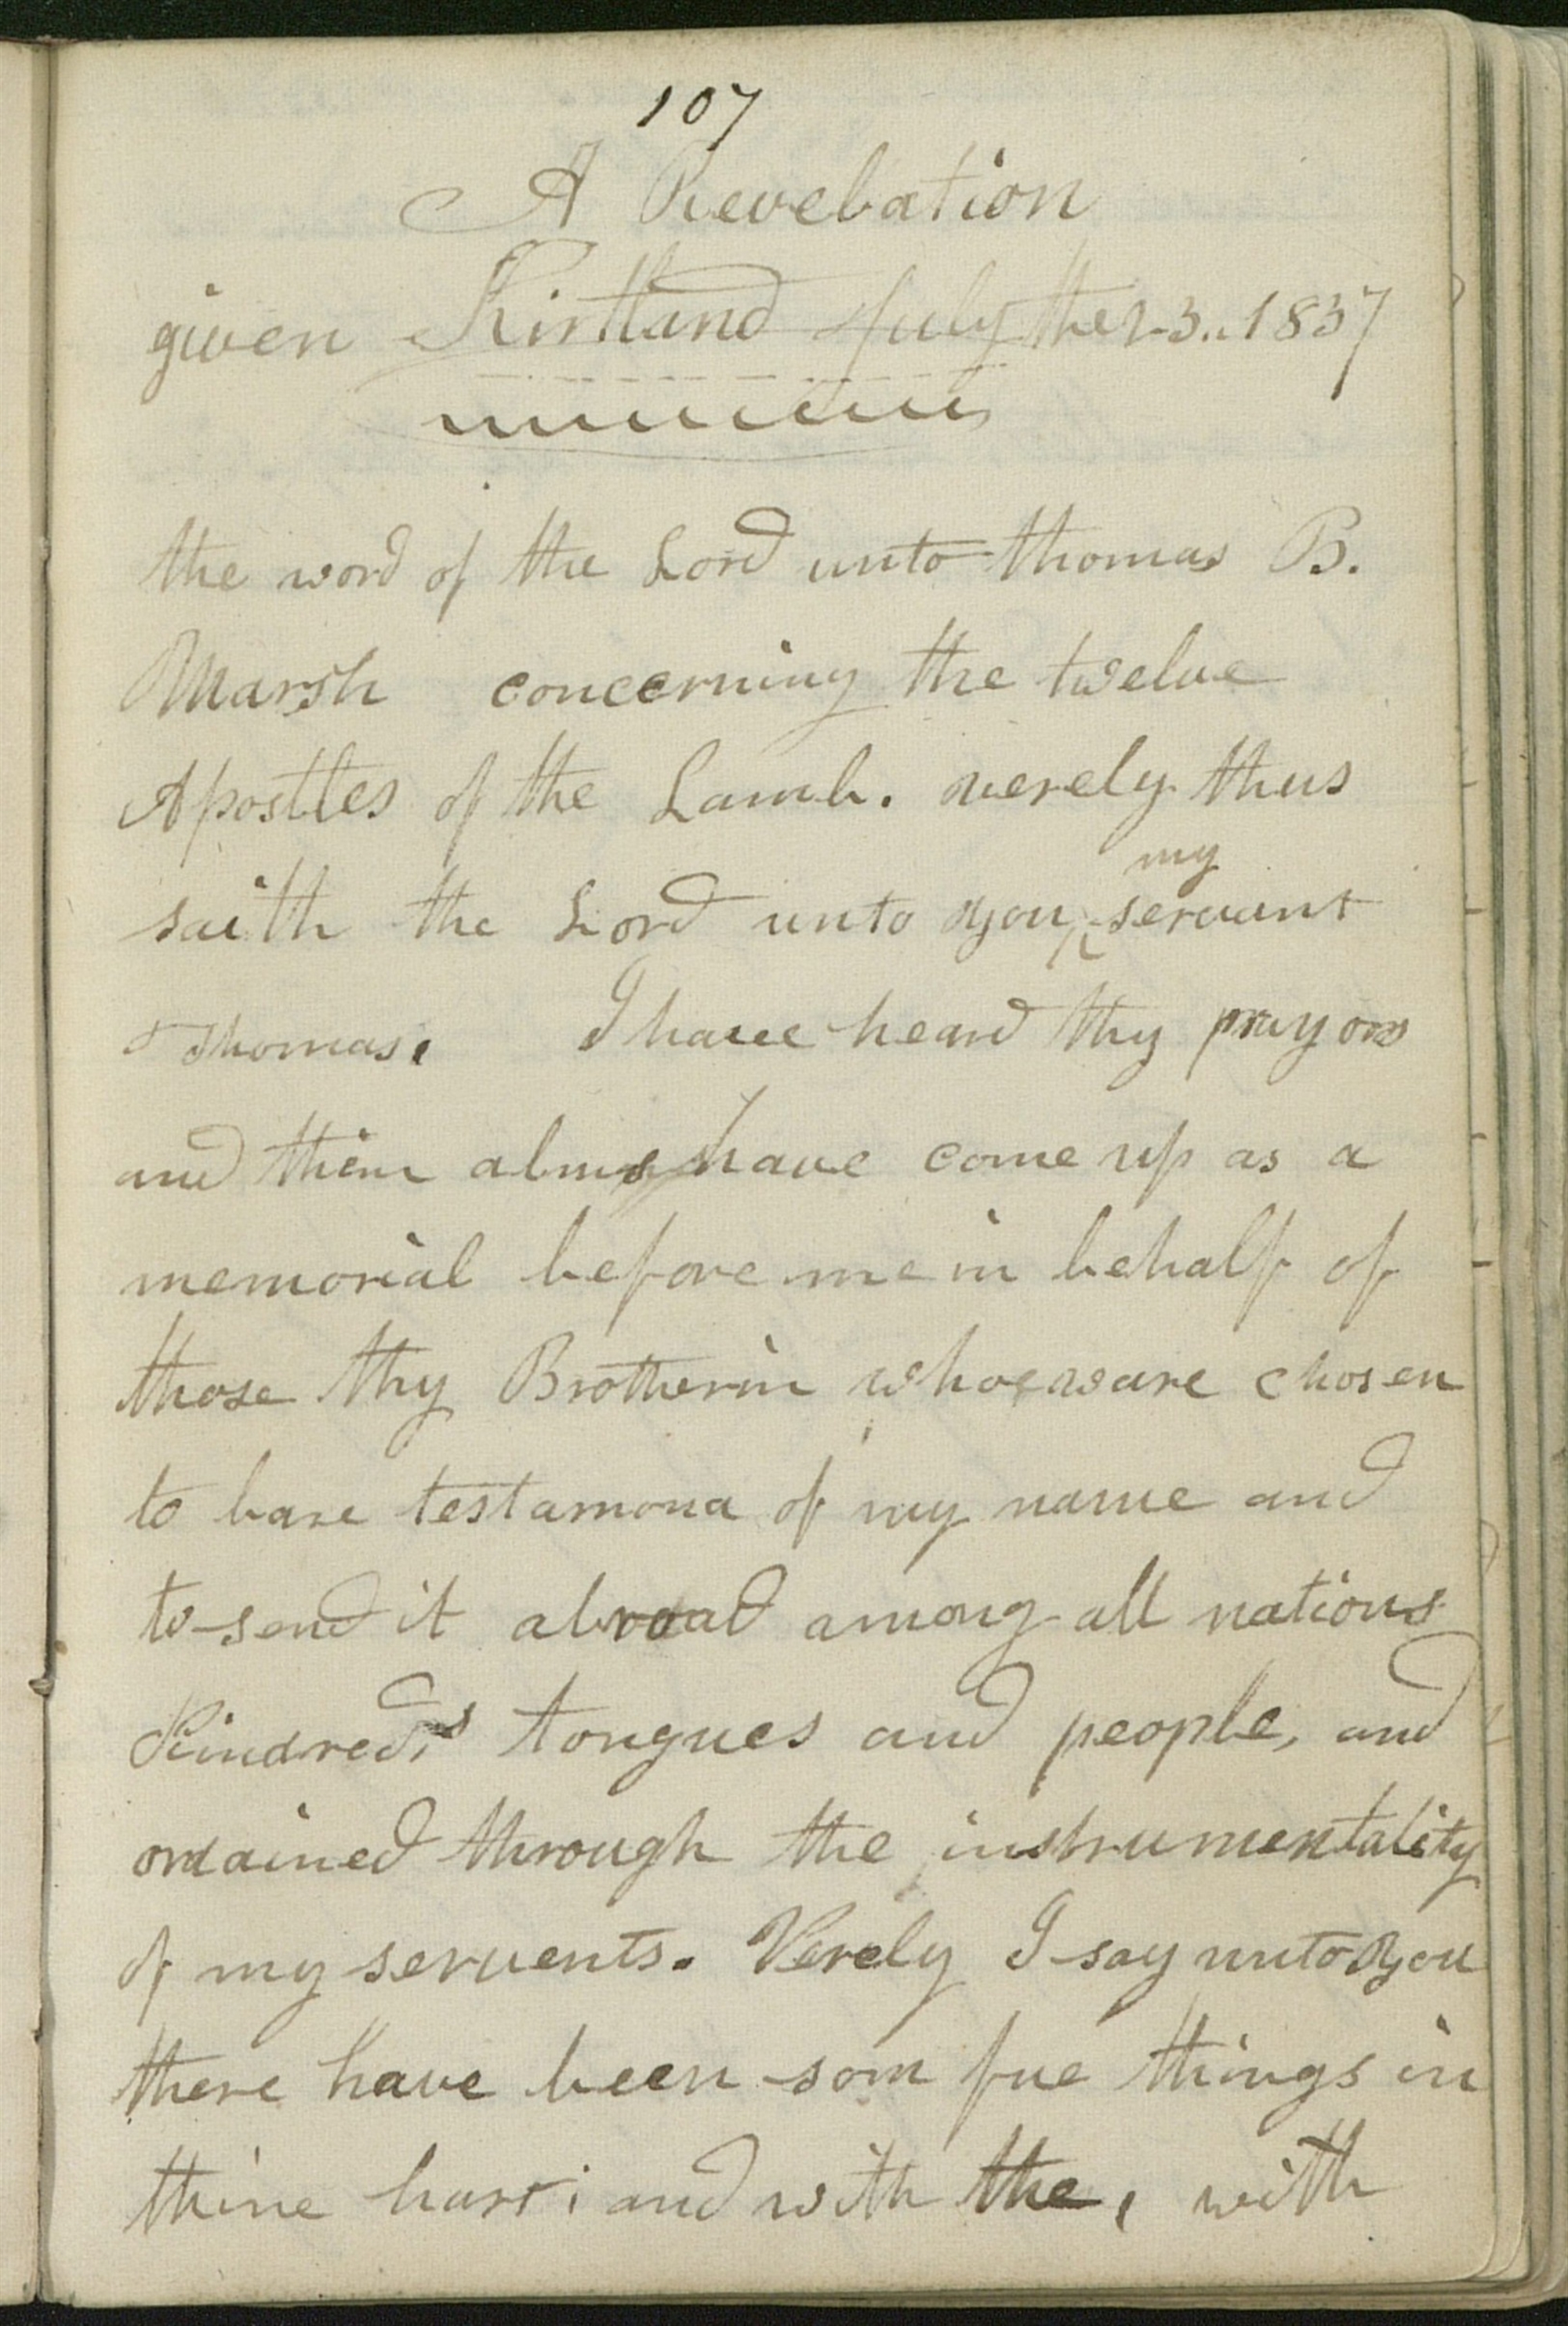 107
A Revelation
given Kirtland July the 23.. 1837
the word of the Lord unto thomas B.
Marsh concerning the twelve
Apostles of the Lamb. verely thus
saith the Lord unto you my servant
Thomas. I have heard thy prayors
and thine alms have come up as a
memorial before me in behalf of
those thy Brotherin who ware chosen
to bare testamona of my name and
to send it abroad among all nations
Kindreds tongues and people, and
ordained through the instrumentality
of my servents. Verely I say unto you
there have been som fue things in
thine hart and with the, with